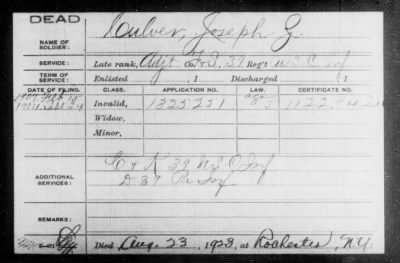 DEAD
NAME OF SOLDIER: Culver, Joseph Z.
SERVICE: Late rank, Adjt Co. F&S, 39 Reg't U.S. C Inf
TERM OF SERVICE: Enlisted , 1 Discharged , 1
DATE OF FILING. CLASS. APPLICATION NO. LAW. CERTIFICATE NO.
1907 Invalid, 1325251
Widow,
Minor,
ADDITIONAL SERVICES: C & K 39 U S C Inf
D 37 Inf
REMARKS:
Died Aug. 23, 1923, at Rochester, N.Y.